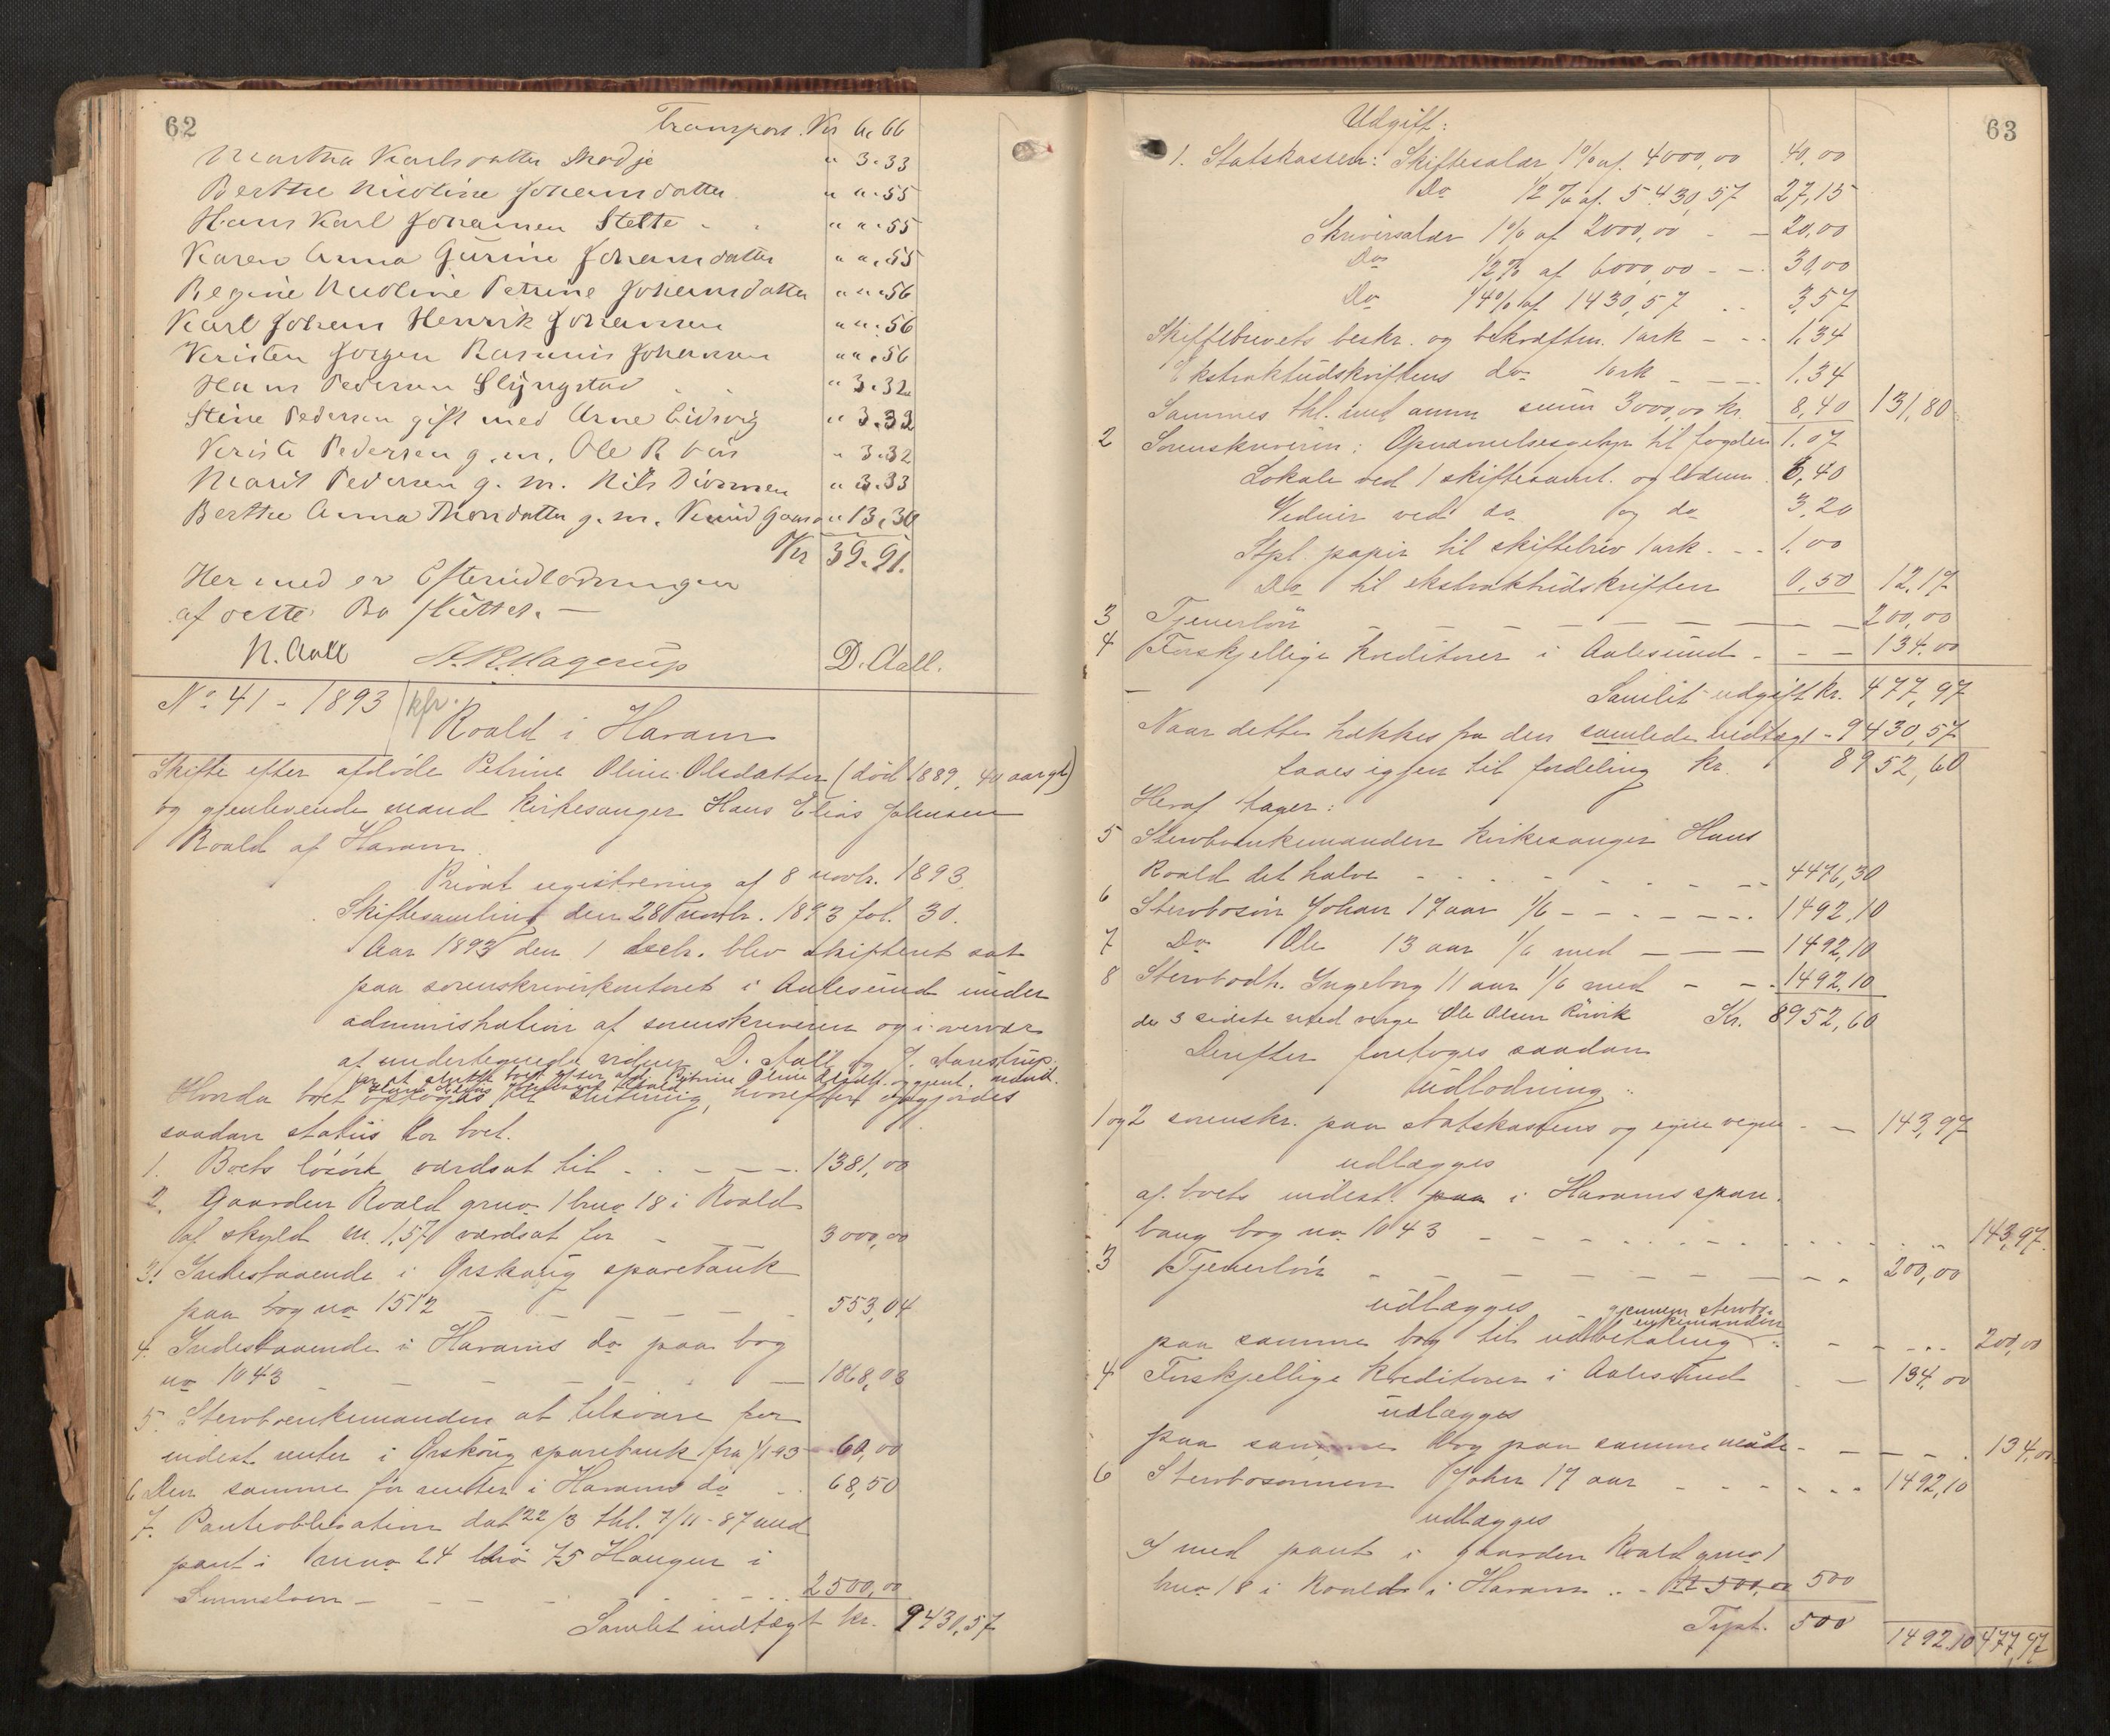 62
Transport. Kr 6. 66
Martha Karlsdatter Skodje " 3.33
Berthe Nicoline Johansdatter " ".55
Hans Karl Johansen Stette " ".55
Karen Anna Gurine Johansdatter " ".55
Regine Nicoline Petrine Johansdatter " ".56
Karl Johan Henrik Johansen " ".56
Kristen Jørgen Rasmus Johansen " ".56
Hans Pedersen Slyngstad " 3.32
Stine Pedersen gift med Arne Eidsvig " 3.33
Kristi Pedersen g. m. Ole R. " 3.32
Marit Pedersen g. m. Nils " 3.33
Berthe Anna Thorsdatter g. m. Knud " 13.30
Kr 39.91.
Hermed er Efterudlodningen
af dette Bo sluttet. —
N. Aall H. R. Hagerup D. Aall.
No 41 - 1893 kfr.
Roald i Haram
Skifte efter afdøde Petrine Oline Olsdatter (død 1889, 40 aar gl)
og gjenlevende mand kirkesanger Hans Elias Johnsen
Roald af Haram.
Privat registrering af 8 novbr. 1893.
Skiftesamling den 28 novbr. 1893 fol. 30.
Aar 1893 den 1 decbr. blev skifteret sat
paa sorenskriverkontoret i Aalesund under
administration af sorenskriveren og i overvær
af undertegnede vidner D. Aall og J. Aarestrup
for at slutte boet efter afd. Petrine Oline Olsdatt. og gjenl. mand
Hans Elias Johnsen Roald
Hvorda boet optoges til slutning, hvorefter opgjordes
saadan status for boet.
1. Boets løsøre værdsat til - - - - 1381,00
2. Gaarden Roald gno. 1 bno. 18 i Roald
af skyld m. 1,57 værdsat for - - 3000,00
3. Indestaaende i Ørskoug sparebank
paa bog no 1512 - - - - 553,04
4. Indestaaende i Harams do paa bog
no 1043 - - - - 1868,03
5. Stervboenkemanden at tilsvare for
indest. renter i Ørskoug sparebank fra 1/1 93 60,00
6 Den samme for renter i Harams do - . 68,50
7. Panteobligation dat. 22/3 thl. 7/11 - 87 med
pant i gno. 24 bno 75 Haugen i
- - - - 2500,00
Samlet indtægt kr. 9430,57
63
Udgift:
1. Statskassen: Skiftesalær 1% af 4000,00 40,00
Do 1/2 % af 5430,57 27,15
Skriversalær 1% af 2000,00 - - 20,00
Do 1/2% af 6000,00 - - 30,00
Do 1/4% af 1430,57 .. 3,57
Skiftebrevets beskr. og bekræften. 1 ark - - - 1,34
Ekstraktudskriftens do 1 ark - - - 1,34
Sammes thl. med anm sum 3000,00 kr. 8,40 131,80
2 Sorenskriveren: Opnævnelsesgebyr til fogden 1.07
Lokale ved 1 skiftesaml. og lodsm. 6,40
Vidner ved do og do 3,20
Stpl. papir til skiftebrev 1 ark - - - 1,00
Do til ekstraktudskriften 0,50 12,17
3 Tjenerløn - - - - 200,00
4 Forskjellige kreditorer i Aalesund - - - 134.00
Samlet udgift kr. 477,97
Naar dette trækkes fra den samlede indtægt - 9430,57
faaes igjen til fordeling kr. 8952,60
Heraf tager:
5 Stervboenkemanden kirkesanger Hans
Roald det halve - - - - 4476,30
6 Stervbosøn Johan 17 aar 1/6 - - - - 1492,10
7 Do Ole 13 aar 1/6 med - - - 1492,10
8 Stervbodtr. Ingeborg 11 aar 1/6 med - - - 1492.10
de 3 sidste med verge Ole Olsen Kr. 8952,60
Derefter foretoges saadan
udlodning:
1 og 2 sorenskr. paa statskassens og egne vegne - - 143,97
udlægges
af boets indest. paa i Harams spare-
bang bog no. 1043 - - - - 143,97.
3 Tjenerløn - - - - 200,00
udlægges gjennem stervbo-
enkemanden
paa samme bog til udbetaling - - - - 200,00
4 Forskjellige kreditorer i Aalesund - - 134,00
udlægges
paa samme bog paa samme maade - - - - 134,00
6 Stervbosønnen Johan 17 aar - - - - 1492,10
udlægges
a) med pant i gaarden Roald gno 1
bno. 18 i Roald i Haram .. - 500
Trpt. 500 1492.10 477,97